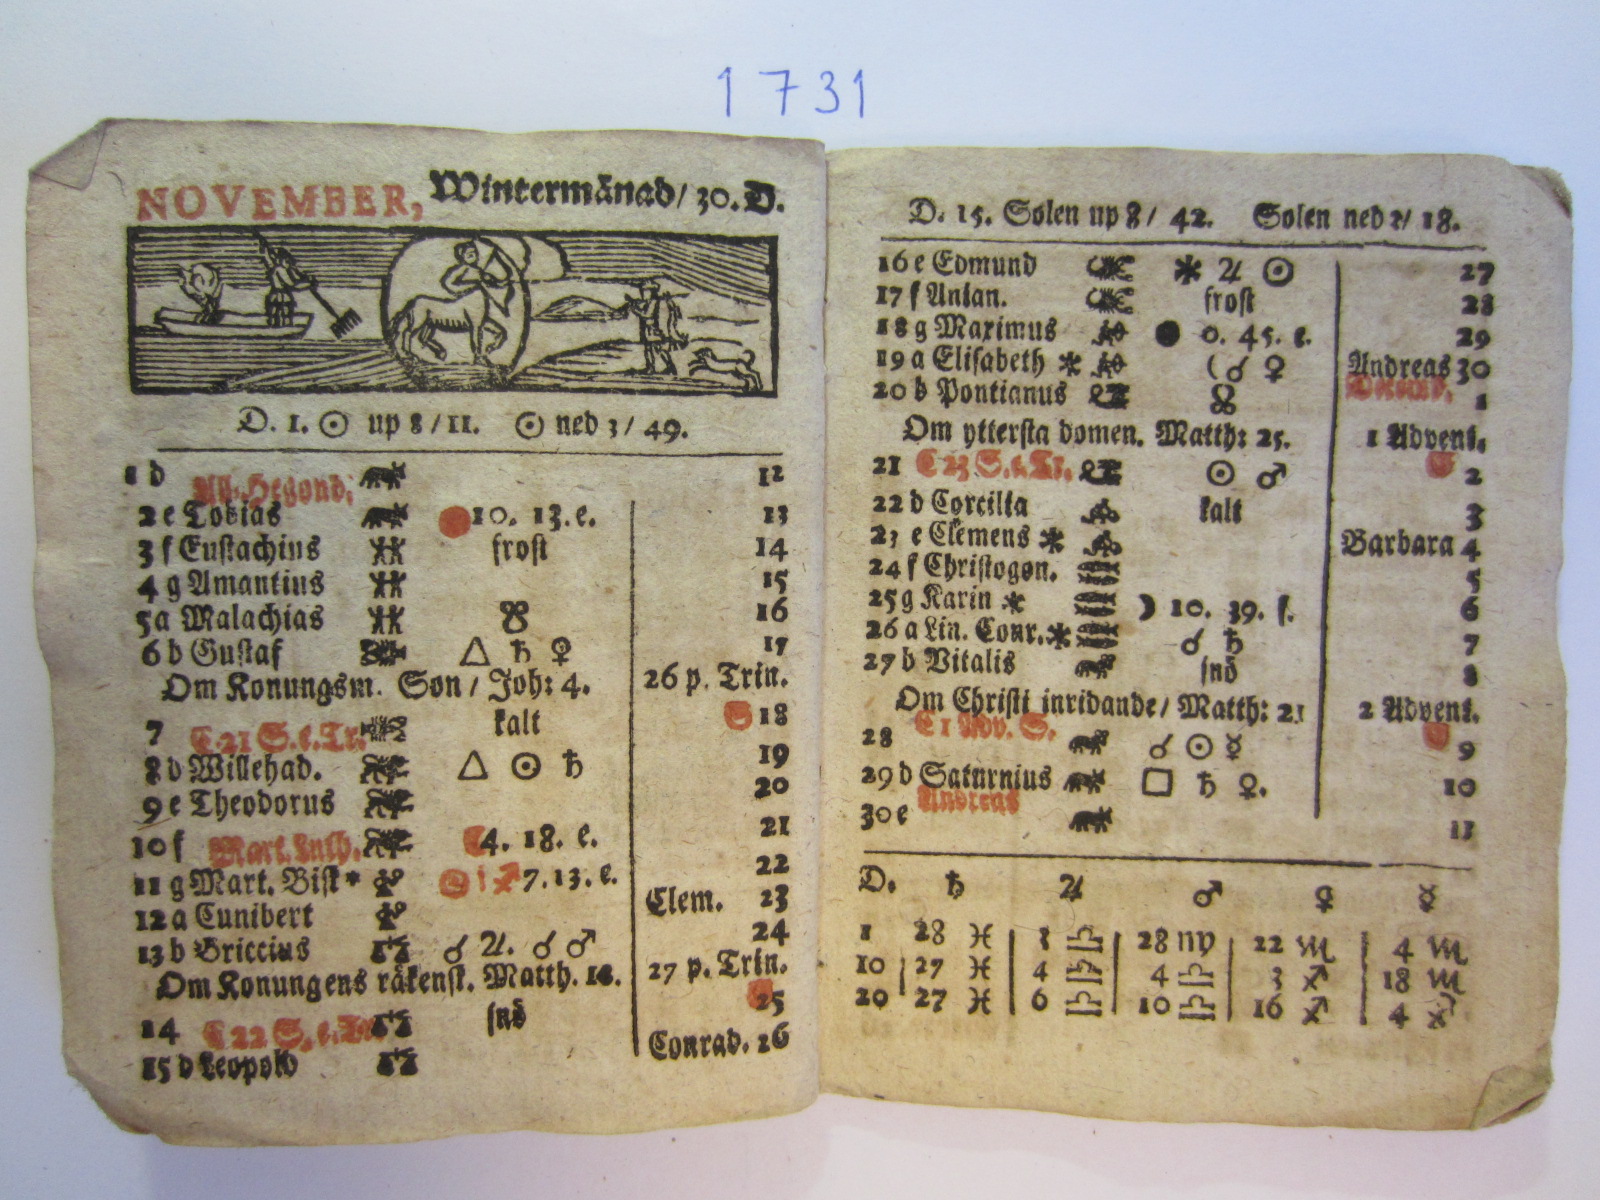 1731
NOVEMBER, Wintermånad/ 30. D.
D. 1. ☉ up 8/11. ☉ ned 3/ 49.
1 d Helgond. 12
2 e Tobias 10. 13. e. 13
3 f Eustachius frost 14
4 g Amantius 15
5 a Malachias ☋ 16
6 b Gustaf △ ♄ ♀ 17
Om Konungsm. Son/ Joh: 4. 26 p. Trin.
7 C. 21 S. e. Tr. kalt 18
8 d Willehad. △ ☉ ♄ 19
9 e Theodorus 20
10 f Mart. Luth. 4. 18. e. 21
11 g Mart. Bisk* ☉ i ♐ 7. 13. e. 22
12 a Cunibert Clem. 23
13 b Briccius ☌ ♃. ☌ ♂ 24
Om Konungens räkensk. Matth. 18. 27 p. Trin.
14 C 22 S. e. Tr. snö 25
15 d Leopold Conrad. 26
D. 15. Solen up 8/ 42. Solen ned 2/ 18.
16 e Edmund * ♃ ☉ 27
17 f Anian. frost 28
18 g Maximus ● 0. 45. e. 29
19 a Elisabeth * ( ☌ ♀ Andreas 30
20 b Pontianus ☊ Decemb. 1
Om yttersta domen. Matth: 25. 1 Advent.
21 C 23 S. e. Tr. ☉ ♂ 2
22 d Corcilia kalt 3
23 e Clemens * Barbara 4
24 f Christogon. 5
25 g Karin * ☽ 10. 39. f. 6
26 a Lin. Conr. * ☌ ♄ 7
27 b Vitalis snö 8
Om Christi inridande/ Matth: 21 2 Advent.
28 C 1 Adv. S. ☌ ☉ ☿ 9
29 d Saturnius □ ♄ ♀. 10
30 e Andreas 11
D. ♄ ♃ ♂ ♀ ☿
1 28 ♓ ♎ 28 ♍ 22 ♏ 4 ♏
10 27 ♓ 4 ♎ 4 ♎ 3 ♐ 18 ♏
20 27 ♓ 6 ♎ 10 ♎ 16 ♐ 4 ♐